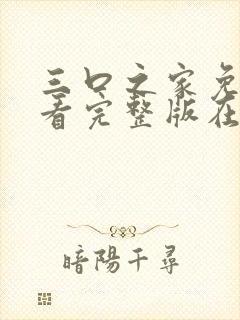 三口之家免
看完整版在
暗陽千尋